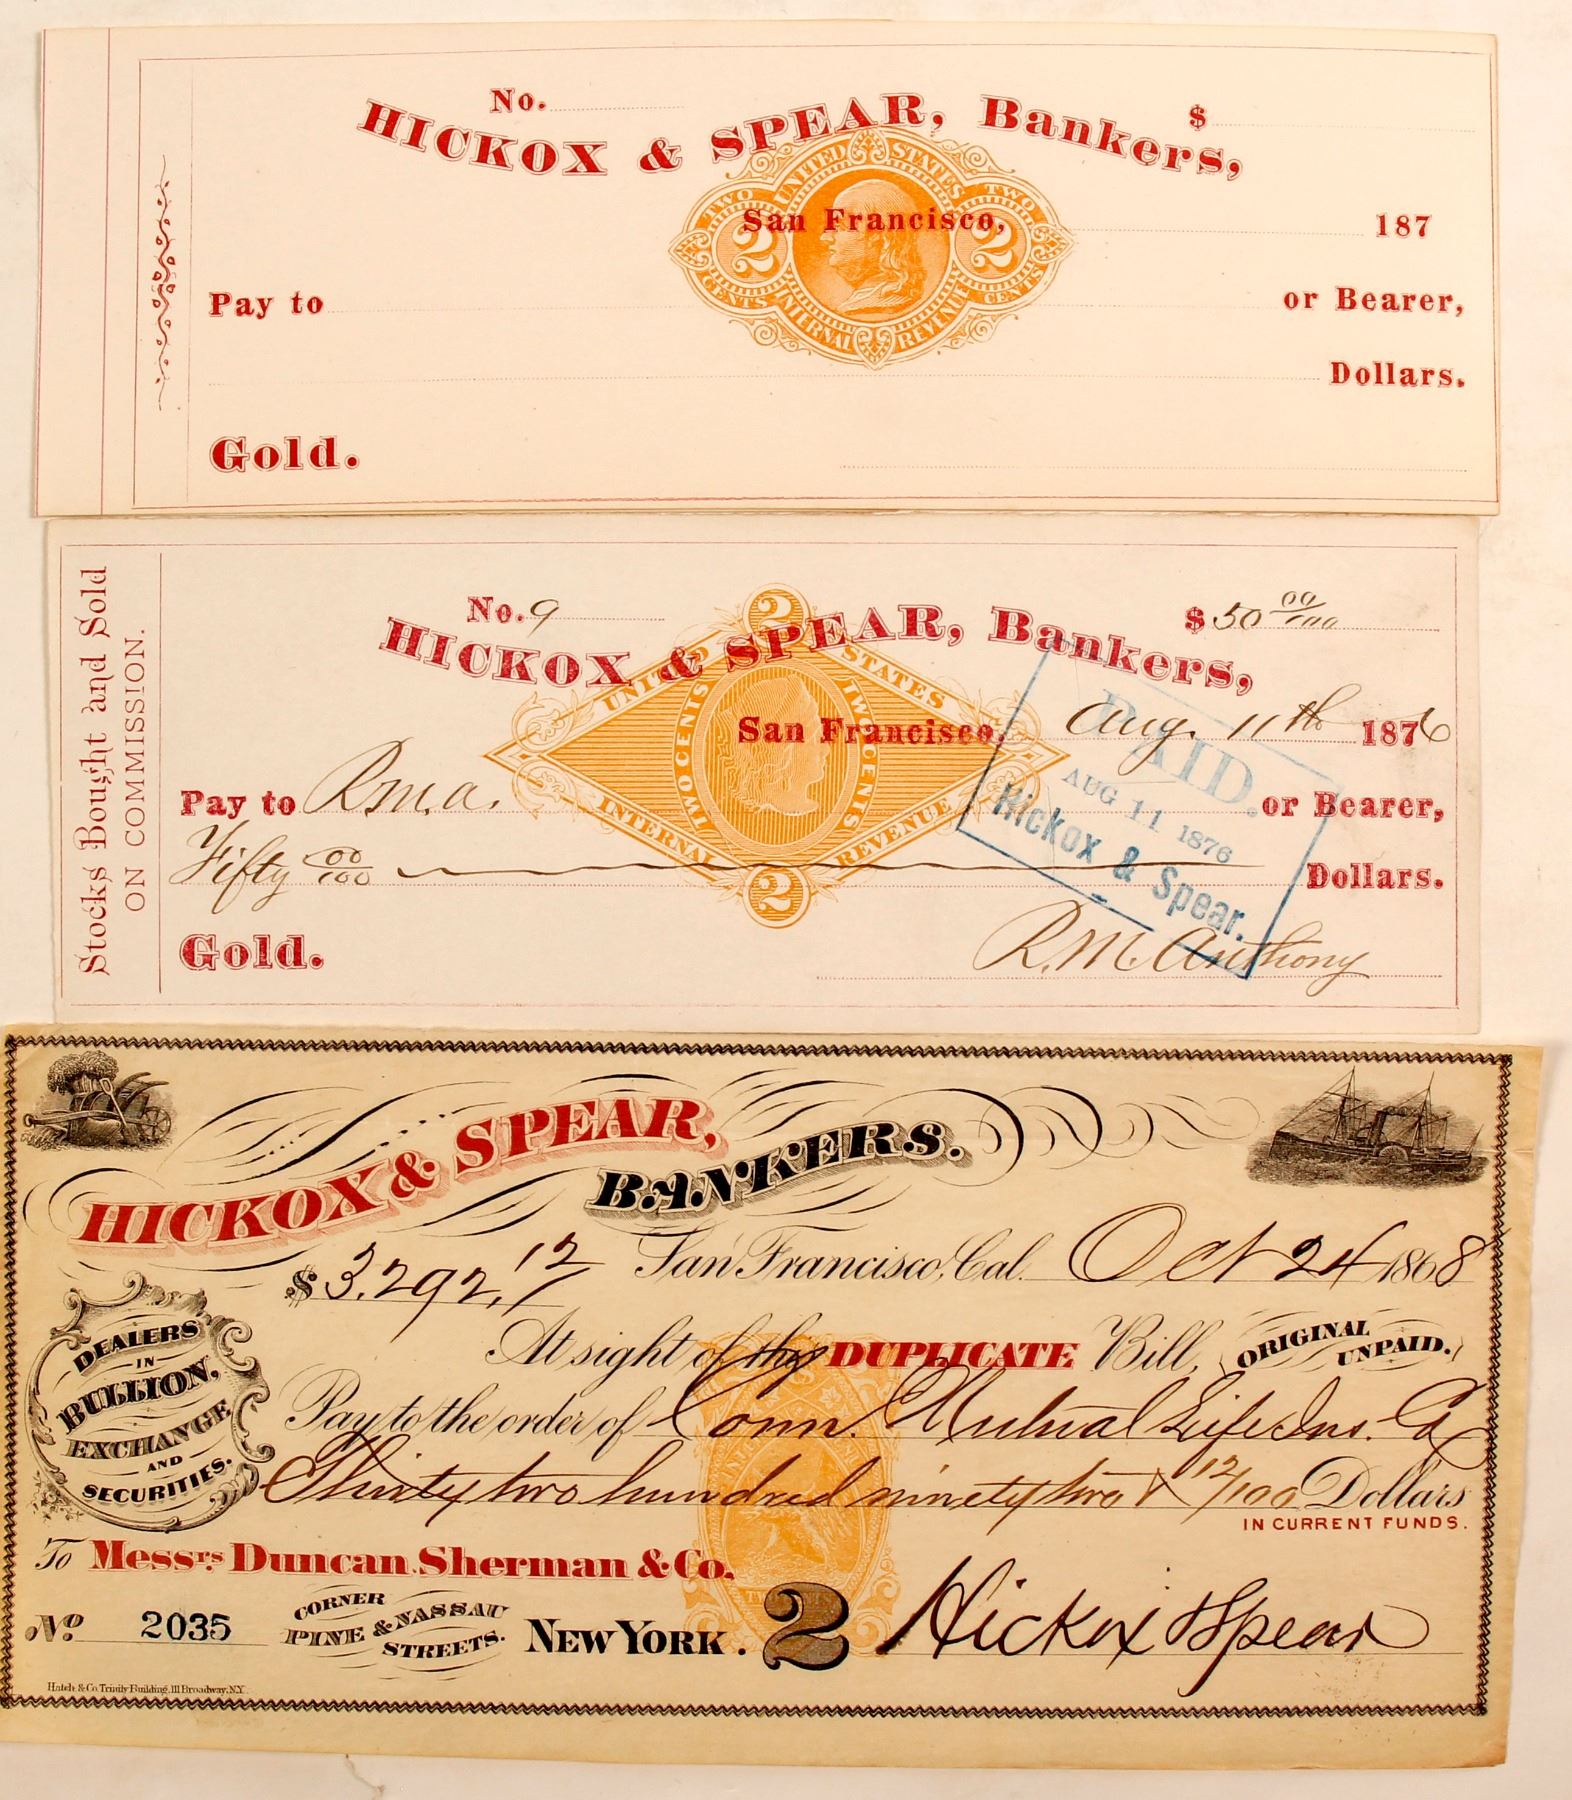 No.
$
HICKOX & SPEAR, Bankers,
UNITED STATES
TWO CENTS 2 2 TWO CENTS
INTERNAL REVENUE
San Francisco, 187
Pay to or Bearer,
Dollars.
Gold.
Stocks Bought and Sold
ON COMMISSION.
No. 9
$ 50 00/100
HICKOX & SPEAR, Bankers,
2
UNITED STATES
TWO CENTS TWO CENTS
INTERNAL REVENUE
2
San Francisco, Aug. 11th 1876
Pay to R.M.A. or Bearer,
Fifty 00/100 Dollars.
Gold.
R.M. Anthony
PAID.
AUG 11 1876
Hickox & Spear.
HICKOX & SPEAR,
BANKERS.
$3,292,12/ San Francisco, Cal. Oct 24 1868
DEALERS
IN
BULLION,
EXCHANGE
AND
SECURITIES.
At sight of this DUPLICATE Bill, (ORIGINAL UNPAID.)
Pay to the order of Conn. Mutual Life Ins. Co
Thirty two hundred ninety two & 12/100 Dollars
IN CURRENT FUNDS.
To Messrs. Duncan Sherman & Co.
No. 2035
CORNER
PINE & NASSAU
STREETS.
NEW YORK. 2
Hickox & Spear
Hatch & Co. Trinity Building, 111 Broadway, N.Y.